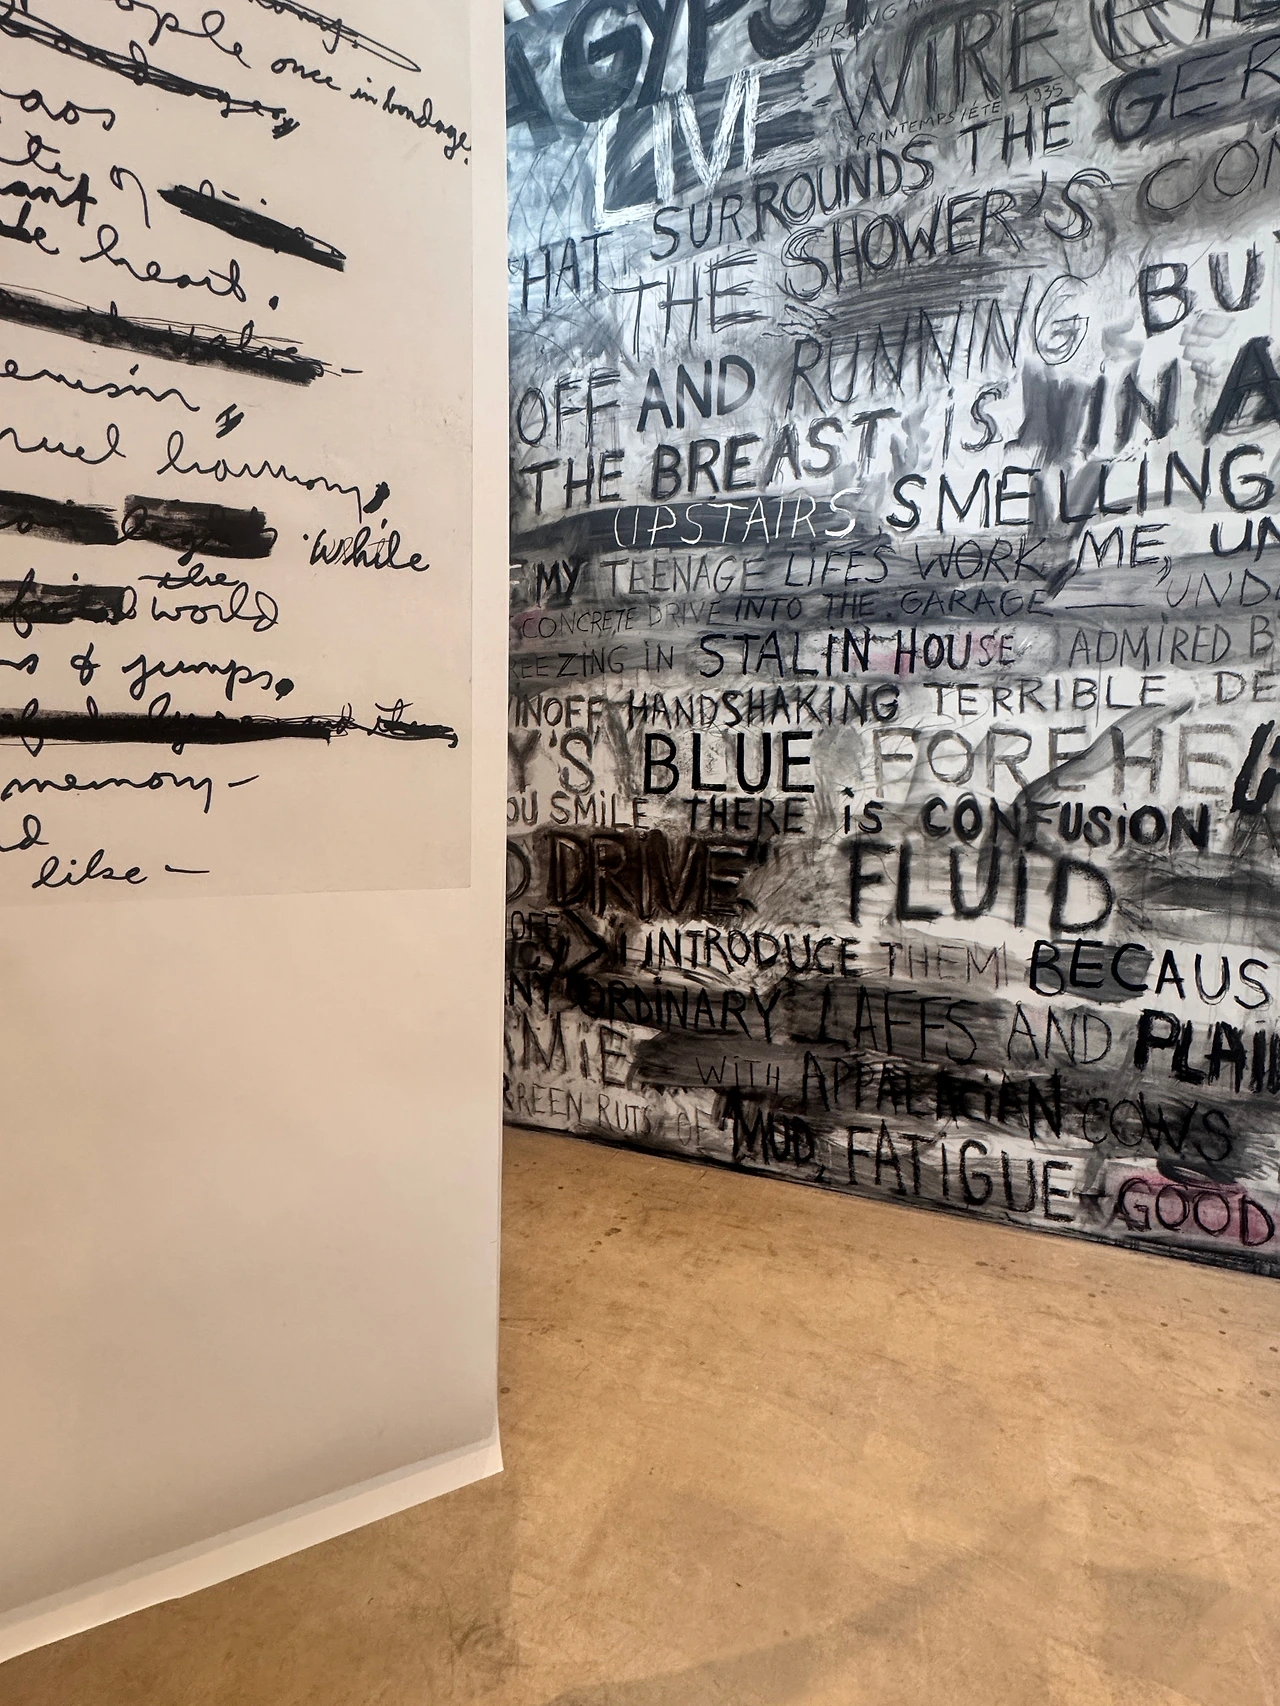 ople once in bondage.
aos
ant of
heart.
ension,
ruel harmony,
while
the
world
s & jumps.
memory –
d
like –
A GYPSY
SPRING
LIVE WIRE
PRINTEMPS/ÉTÉ 1935
HAT SURROUNDS THE GER
THE SHOWER'S CON
OFF AND RUNNING BU
THE BREAST IS IN A
UPSTAIRS SMELLING
MY TEENAGE LIFES WORK ME, UN
CONCRETE DRIVE INTO THE GARAGE — UND
EEZING IN STALIN HOUSE ADMIRED B
INOFF HANDSHAKING TERRIBLE DE
Y'S BLUE FOREHE
OU SMILE THERE IS CONFUSION
D DRIVE" FLUID
OFF
CY > I INTRODUCE THEM BECAUS
NY ORDINARY LAFFS AND PLAI
MIE WITH APPALACIAN COWS
RREEN RUTS OF MUD, FATIGUE - GOOD